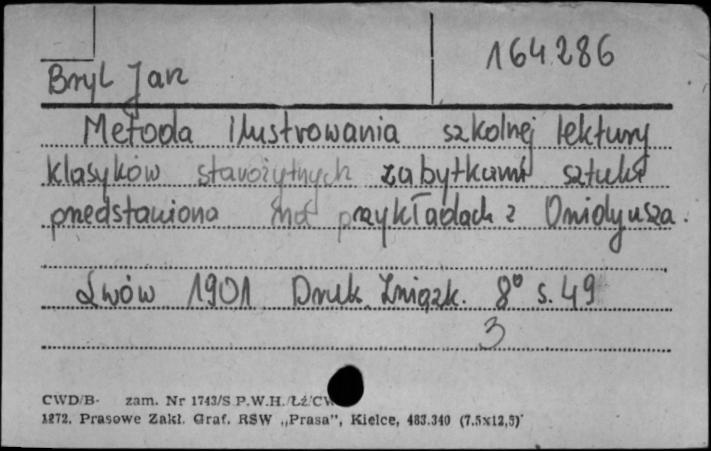 164286
Bryl Jan
Metoda ilustrowania szkolnej lektury
klasyków starożytnych zabytkami sztuki
przedstawiona na przykładach z Owidyusza.
Lwów 1901 Druk. Związk. 8° s. 49
3
CWD/B- zam. Nr 1743/S P.W.H. Łź/CW
1272. Prasowe Zakł. Graf. RSW „Prasa", Kielce, 483.340 (7.5x12,5)